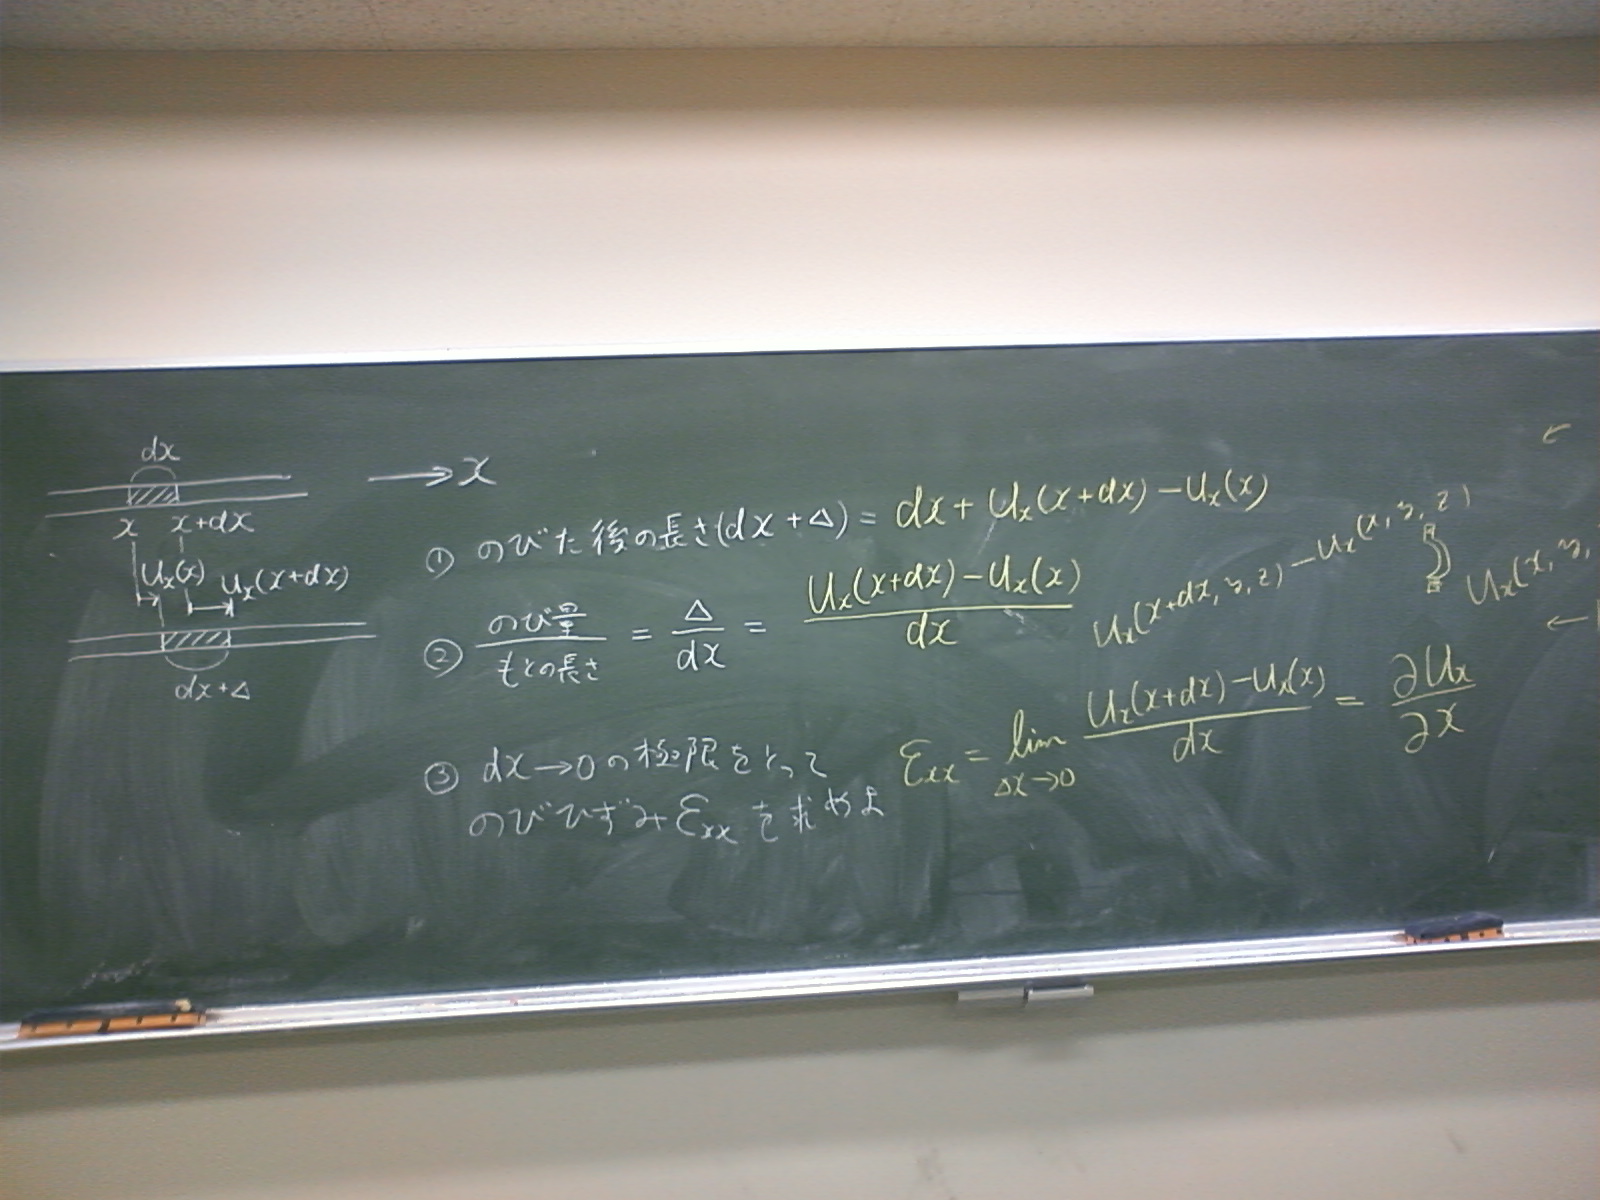 dx
→ x
x x+dx
Ux(x) Ux(x+dx)
dx+Δ
① のびた後の長さ(dx+Δ) = dx + Ux(x+dx) − Ux(x)
② のび量/もとの長さ = Δ/dx = Ux(x+dx) − Ux(x)/dx
Ux(x+dx, y, z) − Ux(x, y, z)
Ux(x, y,
←
←
③ dx→0の極限をとって
のびひずみ εxx を求めよ
εxx = lim Δx→0 Ux(x+dx) − Ux(x)/dx = ∂Ux/∂x